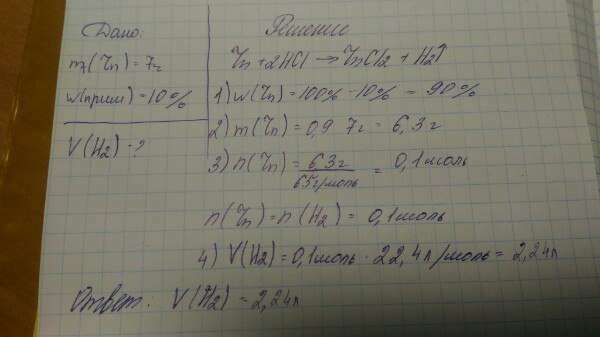 Дано:
m₁(Zn) = 7г
w(прим) = 10%
V(H₂) - ?
Решение
Zn + 2HCl → ZnCl₂ + H₂↑
1) w(Zn) = 100% - 10% = 90%
2) m(Zn) = 0,9 · 7г = 6,3г
3) n(Zn) = 6,3г / 65г/моль = 0,1моль
n(Zn) = n(H₂) = 0,1моль
4) V(H₂) = 0,1моль · 22,4л/моль = 2,24л
Ответ: V(H₂) = 2,24л